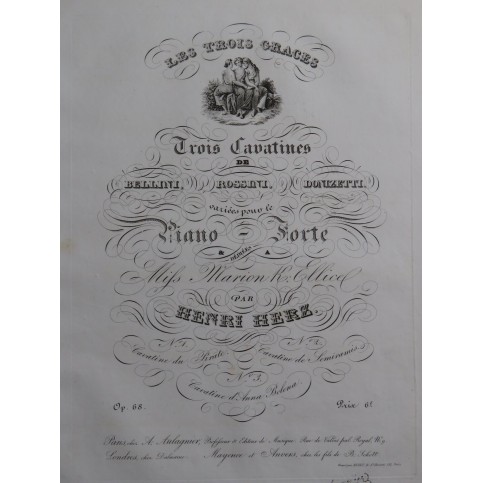 LES TROIS GRACES
Trois Cavatines
DE
BELLINI, ROSSINI, DONIZETTI,
variées pour le
Piano = Forte
& dédiées A
Miss Marion K. Ellice
PAR
HENRI HERZ.
No. 1. No. 2.
Cavatine du Pirate Cavatine de Semiramis
No. 3.
Cavatine d'Anna Bolena
Op. 68. Prix 6f.
Paris, chez A. Aulagnier, Professeur et Editeur de Musique, Rue de Valois pal. Royal,
Londres, chez Dalmaine. Mayence et Anvers, chez les fils de B. Schott